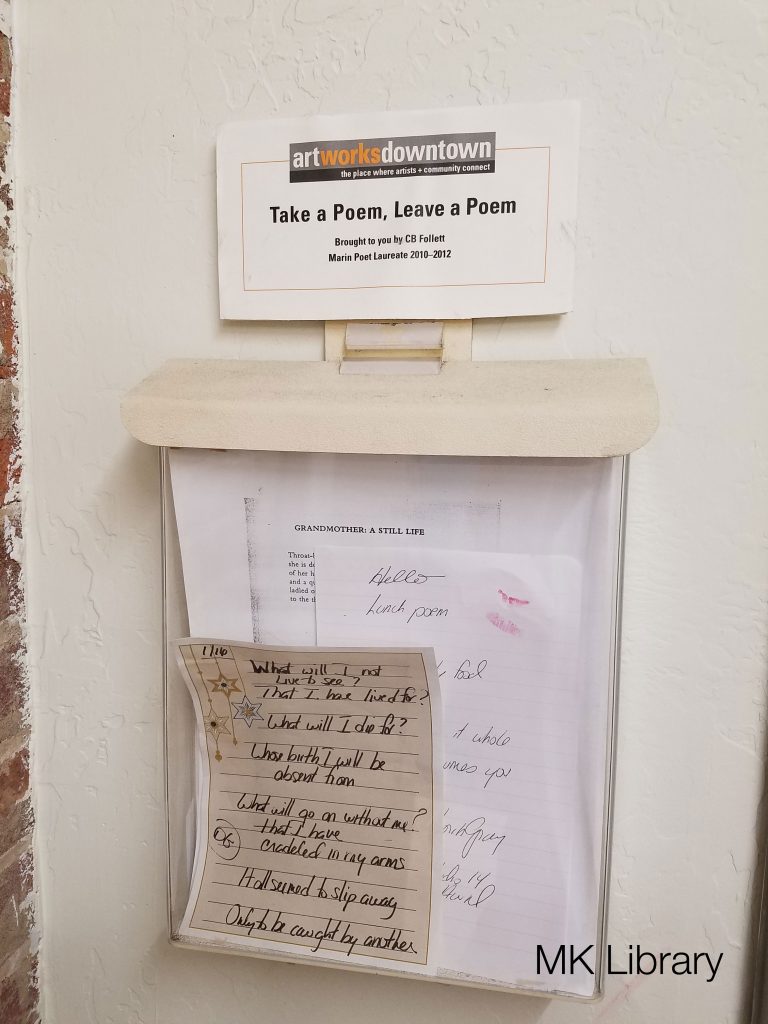 artworksdowntown
the place where artists + community connect
Take a Poem, Leave a Poem
Brought to you by CB Follett
Marin Poet Laureate 2010–2012
GRANDMOTHER: A STILL LIFE
Throat-
she is de
of her h
and a q
ladled o
to the th
Hello
Lunch poem
food
it whole
umes you
1/16
What will I not
live to see?
That I have lived for?
What will I die for?
Whose birth I will be
absent from
What will go on without me?
that I have
cradeled in my arms
DG
It all seemed to slip away
Only to be caught by another
MK Library